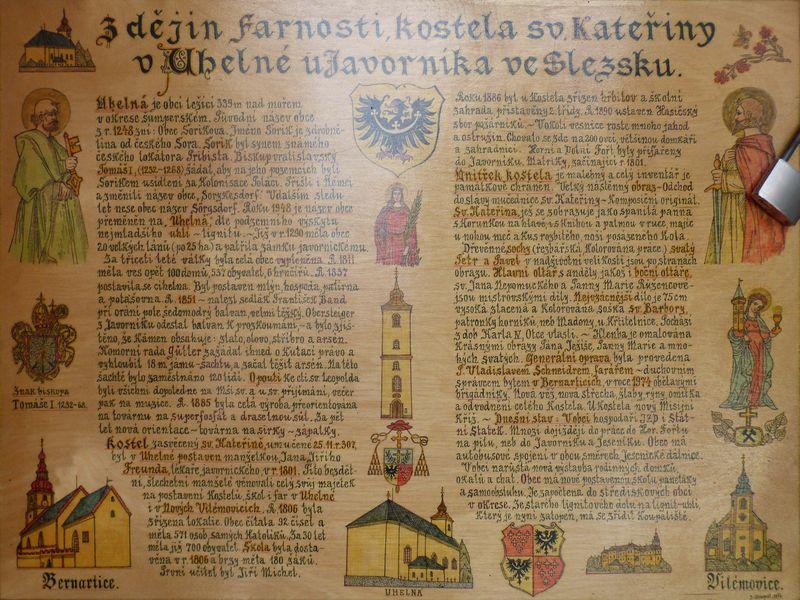 Z dějin Farnosti, kostela sv. Kateřiny
v Uhelné u Javorníka ve Slezsku.
Uhelná je obcí ležící 339 m nad mořem
v okrese šumperském. Původní název obce
z r. 1248 zní: Obec Šoríkova. Jméno Šorík je zdrobně-
lina od českého Sora. Šorík byl synem známého
českého lokátora Přibista. Biskup vratislavský
Tomáš I., (1232-1268) žádal, aby na jeho pozemcích byli
Šoríkem usídleni za kolonisace Poláci. Přišli i Němci
a změnili název obce, Sorykesdorf. V dalším sledu
let nese obec název Sörgsdorf. Roku 1948 je název obce
přeměněn na „Uhelná", dle podzemního výskytu
nejmladšího uhlí - lignitu. ~ Již v r. 1290 měla obec
20 velkých lánů (po 25 ha) a patřila zámku javornickému.
Za třicetileté války byla celá obec vypleněna. R. 1811
měla ves opět 100 domů, 537 obyvatel, 6 hrnčířů. R. 1837
postavila se cihelna. Byl postaven mlýn, hospoda, palírna
a potašovna. R. 1851 ~ nalezl sedlák František Band
při orání pole, šedomodrý balvan, velmi těžký. Obersteiger
z Javorníku odeslal balvan k prozkoumání, ~ a bylo zjiš-
těno, že kámen obsahuje: zlato, olovo, stříbro a arsen.
Komorní rada Güttler zažádal ihned o kutací právo a
vyhloubil 18 m jámu - šachtu, a začal těžit arsen. Na této
šachtě bylo zaměstnáno 120 lidí. O pouti Ke cti sv. Leopolda
byli všichni dopoledne na mši sv. a u sv. přijímání, večer
pak na muzice. R. 1885 byla celá výroba přeorientována
na továrnu na superfosfát a draselnou sůl. Za pět
let nová orientace - továrna na sirky - zápalky.
Kostel zasvěcený sv. Kateřině, umučené 25. 11. r. 307,
byl v Uhelné postaven manželkou Jana Jiřího
Freunda, lékaře javornického, v r. 1801. Tito bezdět-
ní, šlechetní manželé věnovali celý svůj majetek
na postavení kostelů, škol i far v Uhelné
i v Nových Vilémovicích. R. 1806 byla
zřízena lokalie. Obec čítala 92 čísel a
měla 571 osob samých katolíků. Za 30 let
měla již 700 obyvatel. Škola byla dosta-
věna v r. 1806 a brzy měla 180 žáků.
První učitel byl Jiří Michel.
Roku 1886 byl u kostela zřízen hřbitov a školní
zahrada, přistavěny 2. třídy. R. 1890 ustaven Hasičský
sbor požárníků. ~ Vůkolí vesnice roste mnoho jahod
a ostružin. Chovalo se zde na 200 ovcí, většinou domkáři
a zahradníci. Horní a Dolní Fořt byly přifařeny
do Javorníku. Matriky, začínající r. 1801.
Vnitřek kostela je malebný a celý inventář je
památkově chráněn. Velký nástěnný obraz - Odchod
do slávy mučednice sv. Kateřiny - Komposiční originál.
Sv. Kateřina, jež se zobrazuje jako spanilá panna
s korunkou na hlavě, s knihou a palmou v ruce, majíc
u nohou meč a kus rozbitého, nosí posázeného kola.
Dřevěnné sochy (řezbářská, kolorovaná práce), svatý
Petr a Pavel v nadživotní velikosti jsou po stranách
obrazu. Hlavní oltář s anděly, jakož i boční oltáře,
sv. Jana Nepomuckého a Panny Marie Růžencové-
jsou mistrovskými díly. Nejvzácnější dílo je 75 cm
vysoká zlacená a kolorovaná soška Sv. Barbory,
patronky horníků, neb Madony, u křtitelnice. Pochází
z dob Karla IV, Otce vlasti. ~ Klenba je omalována
krásnými obrazy Pána Ježíše, Panny Marie a mno-
hých svatých. Generální oprava byla provedena
P. Vladislavem Schneidrem, farářem ~ duchovním
správcem bytem v Bernarticích, v roce 1974 obětavými
brigádníky. Nová věž, nová střecha, žlaby, rýny, omítka
a odvodnění celého kostela. U kostela nový Misijní
Kříž. ~ Dnešní stav: V obci hospodaří JZD i Stát-
ní Statek. Mnozí dojíždějí do práce do Hor. Fořtu
na pilu, neb do Javorníka a Jeseníku. Obec má
autobusové spojení v obou směrech Jesenické dálnice.
V obci narůstá nová výstavba rodinných domků,
okálů a chat. Obec má nově postavenou školu, panelák
a samoobsluhu. Je započtena do střediskových obcí
v okrese. Ze starého lignitového dolu na lignit-uhlí,
který je nyní zatopen, má se zřídit koupaliště.
Znak biskupa
Tomáše I. 1232-68.
Bernartice.
UHELNÁ
Vilémovice.